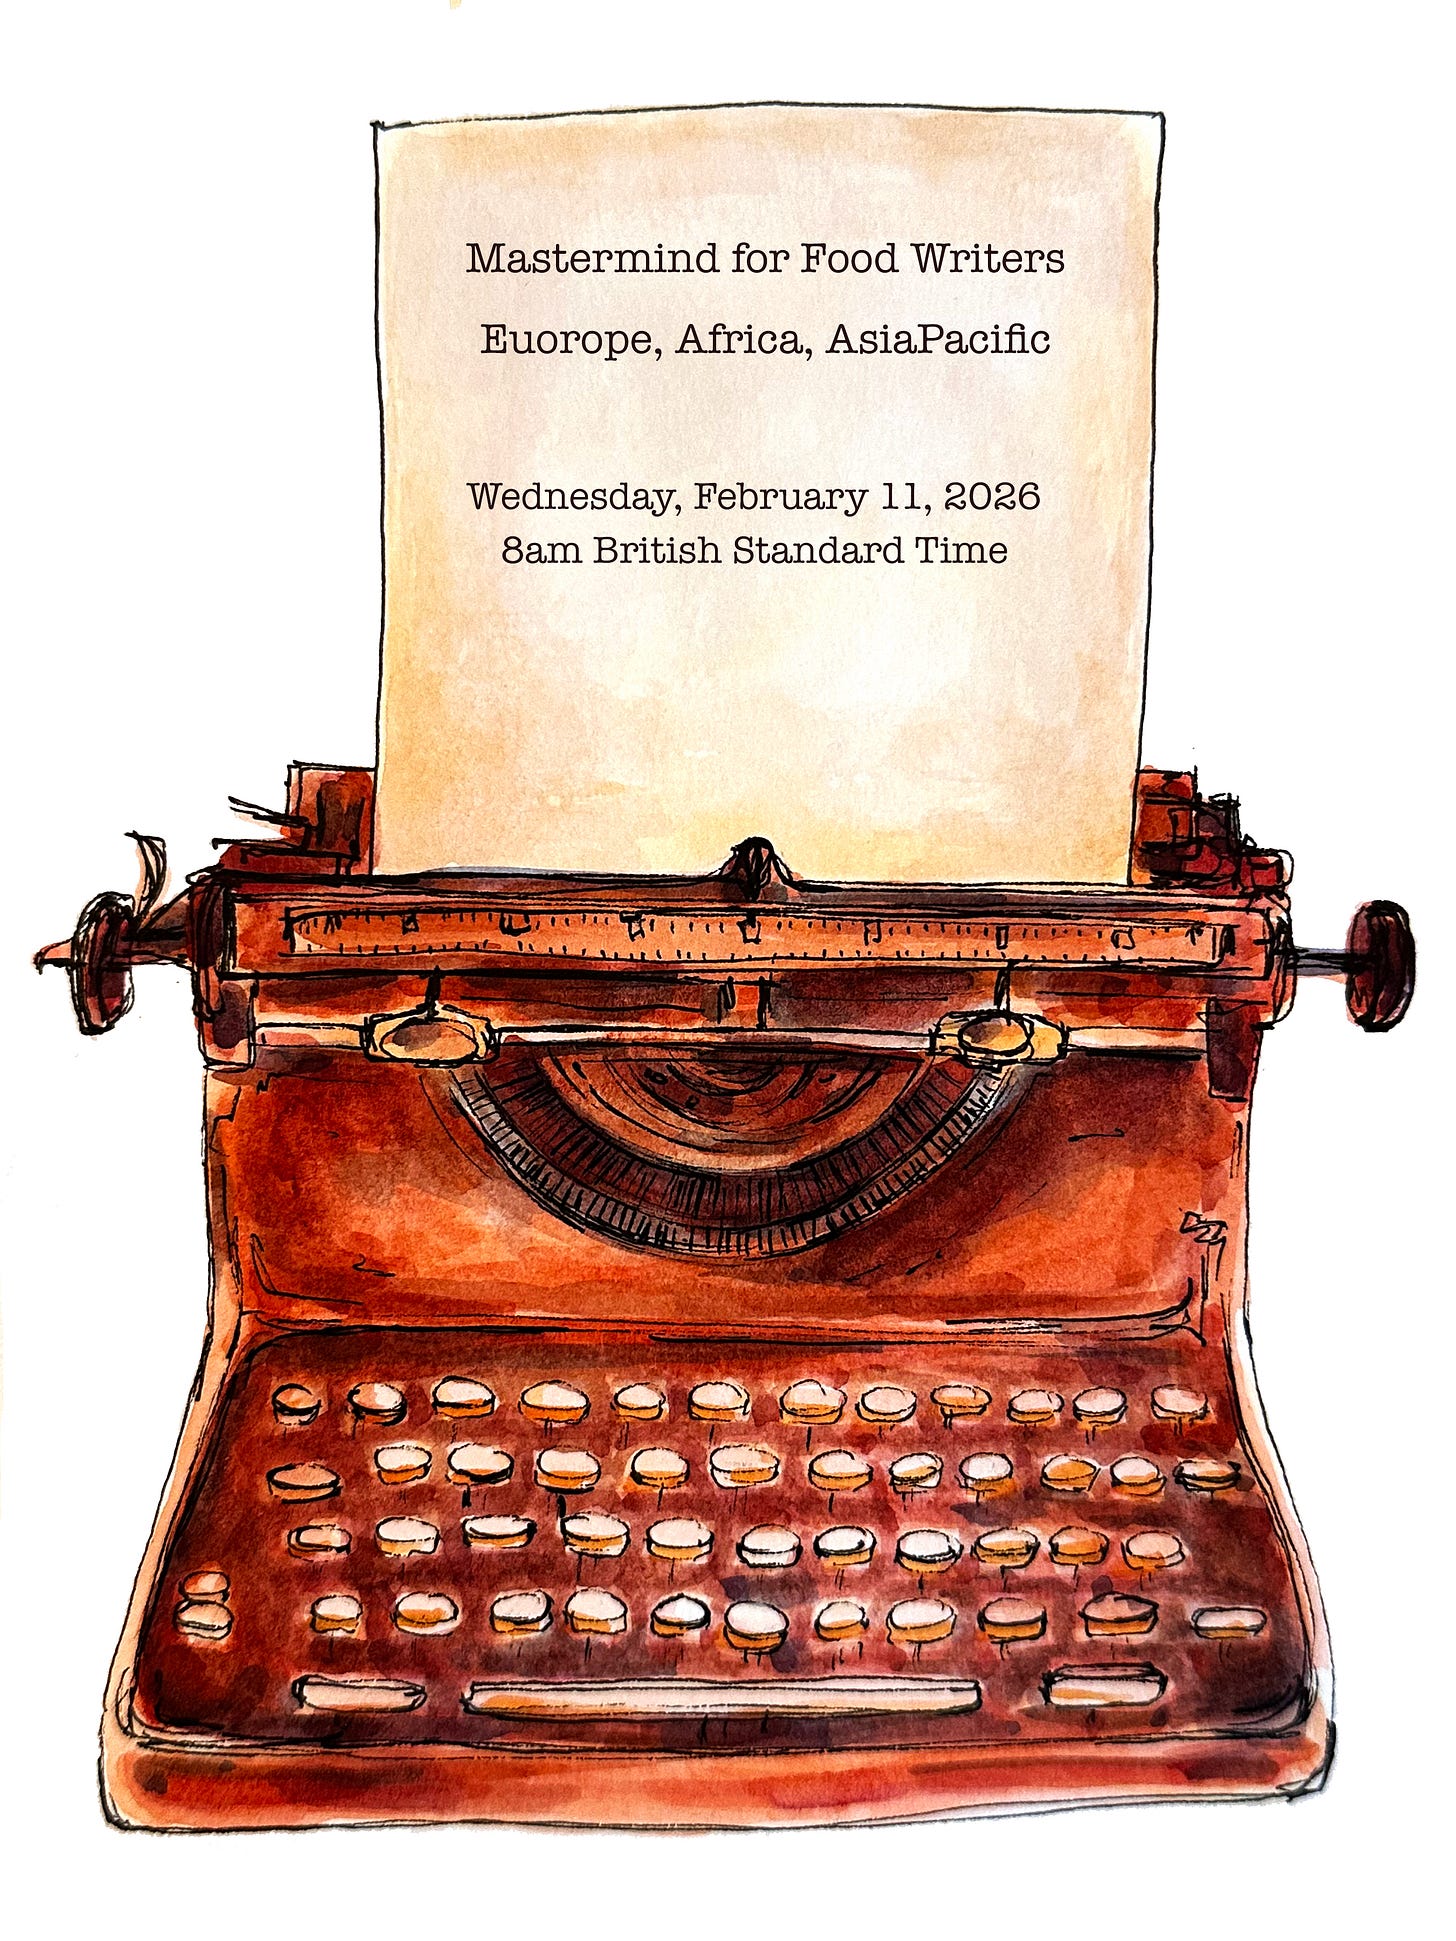 Mastermind for Food Writers
Euorope, Africa, AsiaPacific
Wednesday, February 11, 2026
8am British Standard Time